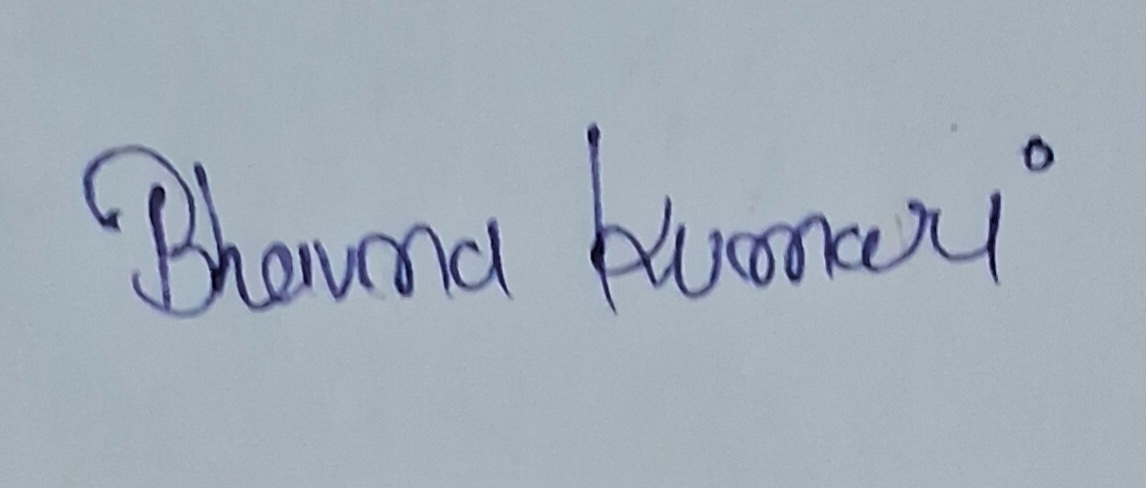 Bhavna Kumari